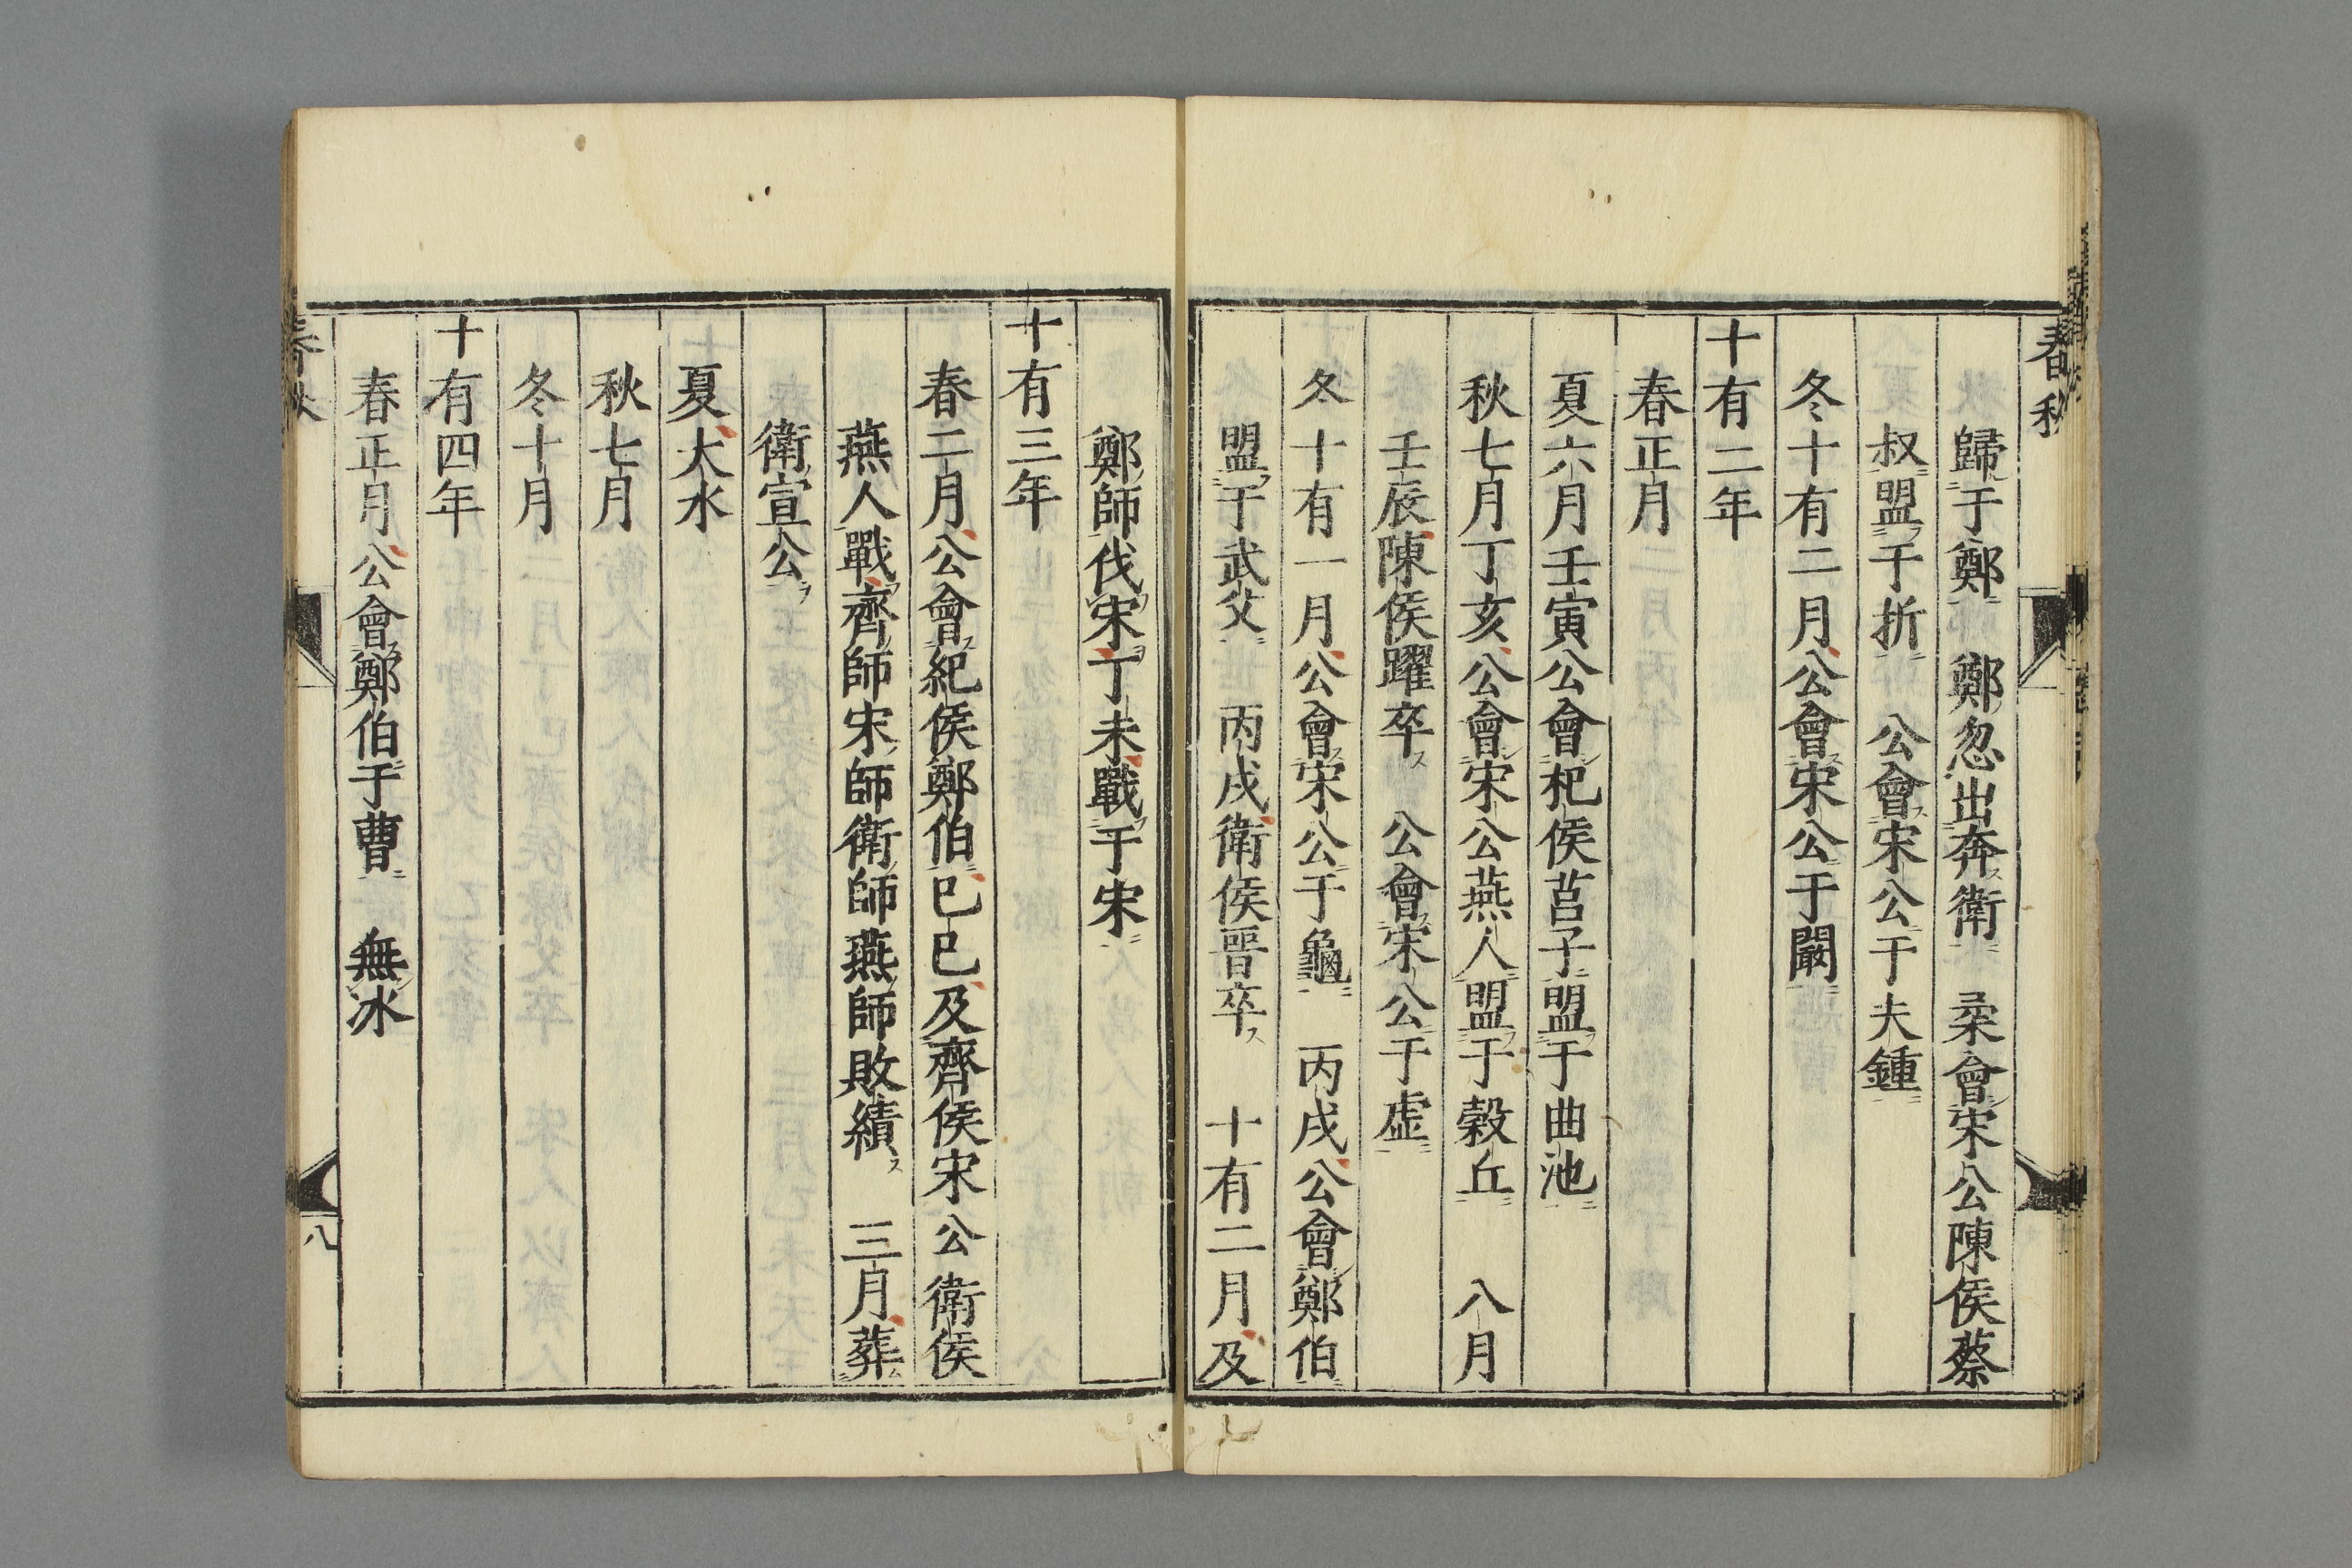 春秋
歸于鄭　鄭忽出奔衛　柔會宋公陳侯蔡
叔盟于折　公會宋公于夫鍾
冬十有二月公會宋公于闞
十有二年
春正月
夏六月壬寅公會杞侯莒子盟于曲池
秋七月丁亥公會宋公燕人盟于穀丘　八月
壬辰陳侯躍卒　公會宋公于虚
冬十有一月公會宋公于龜　丙戌公會鄭伯
盟于武父　丙戌衛侯晉卒　十有二月及
鄭師伐宋丁未戰于宋
十有三年
春二月公會紀侯鄭伯巳巳及齊侯宋公衛侯
燕人戰齊師宋師衛師燕師敗績　三月葬
衛宣公
夏大水
秋七月
冬十月
十有四年
春正月公會鄭伯于曹　無冰
春秋
八